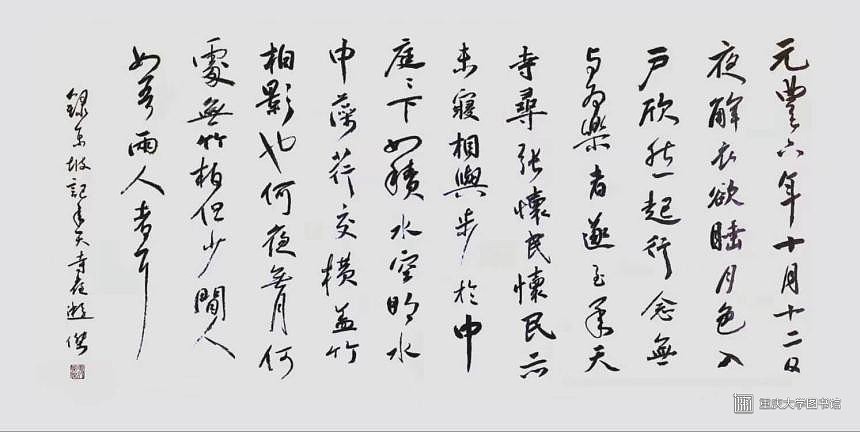 元豐六年十月十二日
夜解衣欲睡月色入
户欣然起行念無
与為樂者遂至承天
寺尋张懷民懷民亦
未寢相與步於中
庭庭下如積水空明水
中藻荇交横盖竹
柏影也何夜無月何
處無竹柏但少閒人
如吾兩人者耳
錄東坡記承天寺夜遊 傑
重庆大学图书馆